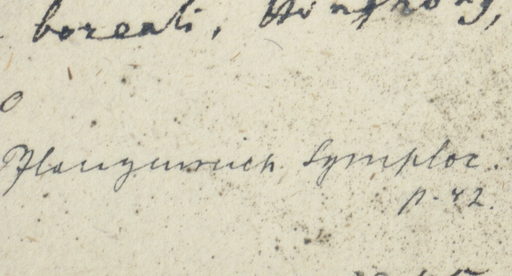 boreali, Hongkong,
Pflanzenreich Symploc.
p. 42